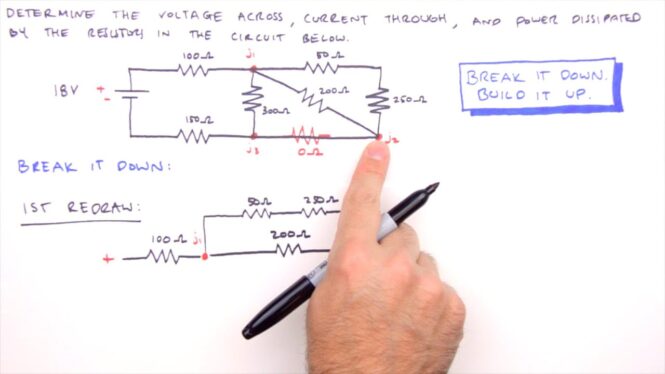 DETERMINE THE VOLTAGE ACROSS, CURRENT THROUGH, AND POWER DISSIPATED
BY THE RESISTORS IN THE CIRCUIT BELOW.
100Ω J1 50Ω
BREAK IT DOWN.
BUILD IT UP.
18V + -
300Ω 200Ω 250Ω
150Ω
J3 0Ω J2
BREAK IT DOWN:
1ST REDRAW:
50Ω 250Ω
100Ω J1 200Ω
+